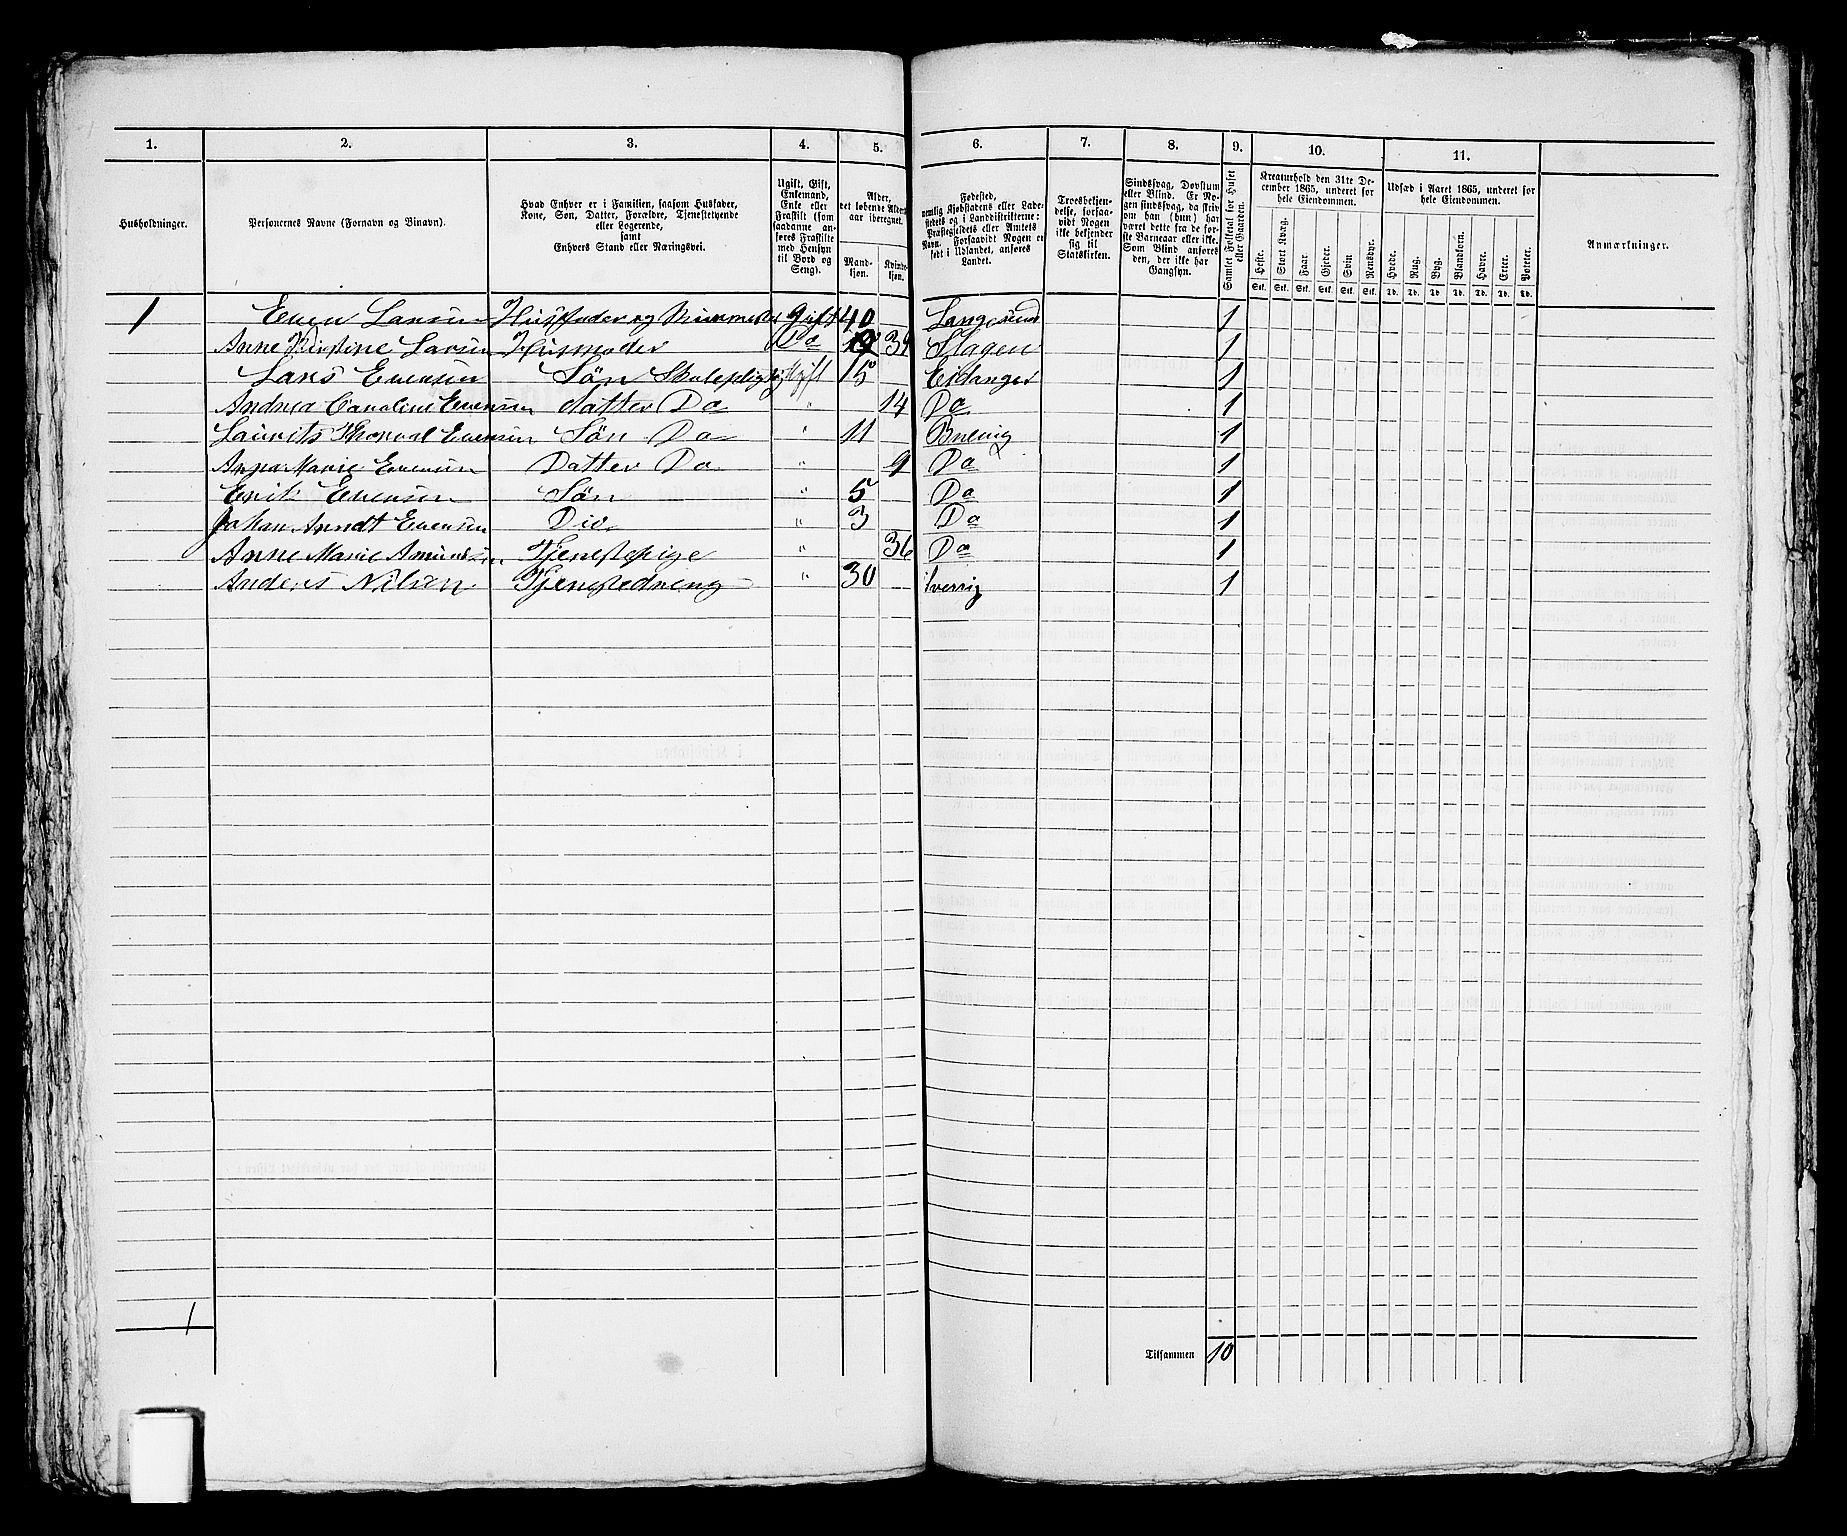 1. 2. 3. 4. 5. 6. 7. 8. 9. 10. 11.
Husholdninger.
Personernes Navne (Fornavn og Binavn).
Hvad Enhver er i Familien, saasom Husfader,
Kone, Søn, Datter, Forældre, Tjenestetyende
eller Logerende,
samt
Enhvers Stand eller Næringsvei.
Ugift, Gift,
Enkemand,
Enke eller
Fraskilt (som
saadanne an-
føres Fraskilte
med Hensyn
til Bord og
Seng).
Alder,
det løbende Alders-
aar iberegnet.
Mand-
kjøn.
Kvinde-
kjøn.
Fødested,
nemlig Kjøbstadens eller Lade-
stedets og i Landdistrikterne:
Præstegjeldets eller Amtets
Navn. Forsaavidt Nogen er
født i Udlandet, anføres
Landet.
Troesbekjen-
delse, forsaa-
vidt Nogen
ikke bekjender
sig til
Statskirken.
Sindssvag, Døvstum
eller Blind. Er No-
gen sindssvag, da skriv
om han (hun) har
været dette fra de før-
ste Barneaar eller ikke.
Som Blind anføres
den, der ikke har
Gangsyn.
Samlet Folketal for Huset
eller Gaarden.
Kreaturhold den 31te De-
cember 1865, underet for
hele Eiendommen.
Heste. Stort Kvæg. Faar. Gjeder. Svin Rensdyr.
Stk. Stk. Stk. Stk. Stk. Stk.
Udsæd i Aaret 1865, underet for
hele Eiendommen.
Hvede. Rug. Byg. Blandkorn. Havre. Erter. Poteter.
Td. Td. Td. Td. Td. Td. Td.
Anmærkninger.
1 Even Larsen Husfader og Murmester Gift 40 Langesund 1
Anne Kirstine Larsen Husmoder Do 39 Slagen 1
Lars Evensen Søn Skolepligtig Ugift 15 Eidanger 1
Andrea Caroline Evensen Datter Do " 14 Do 1
Laurits Thorval Evensen Søn Do " 11 Brevig 1
Anna Marie Evensen Datter Do " 9 Do 1
Erik Evensen Søn " 5 Do 1
Johan Arndt Evensen Dio " 3 Do 1
Anne Marie Amundsen Tjenestepige " 36 Do 1
Anders Nilsen Tjenestedreng " 30 Sverrig 1
1
Tilsammen 10